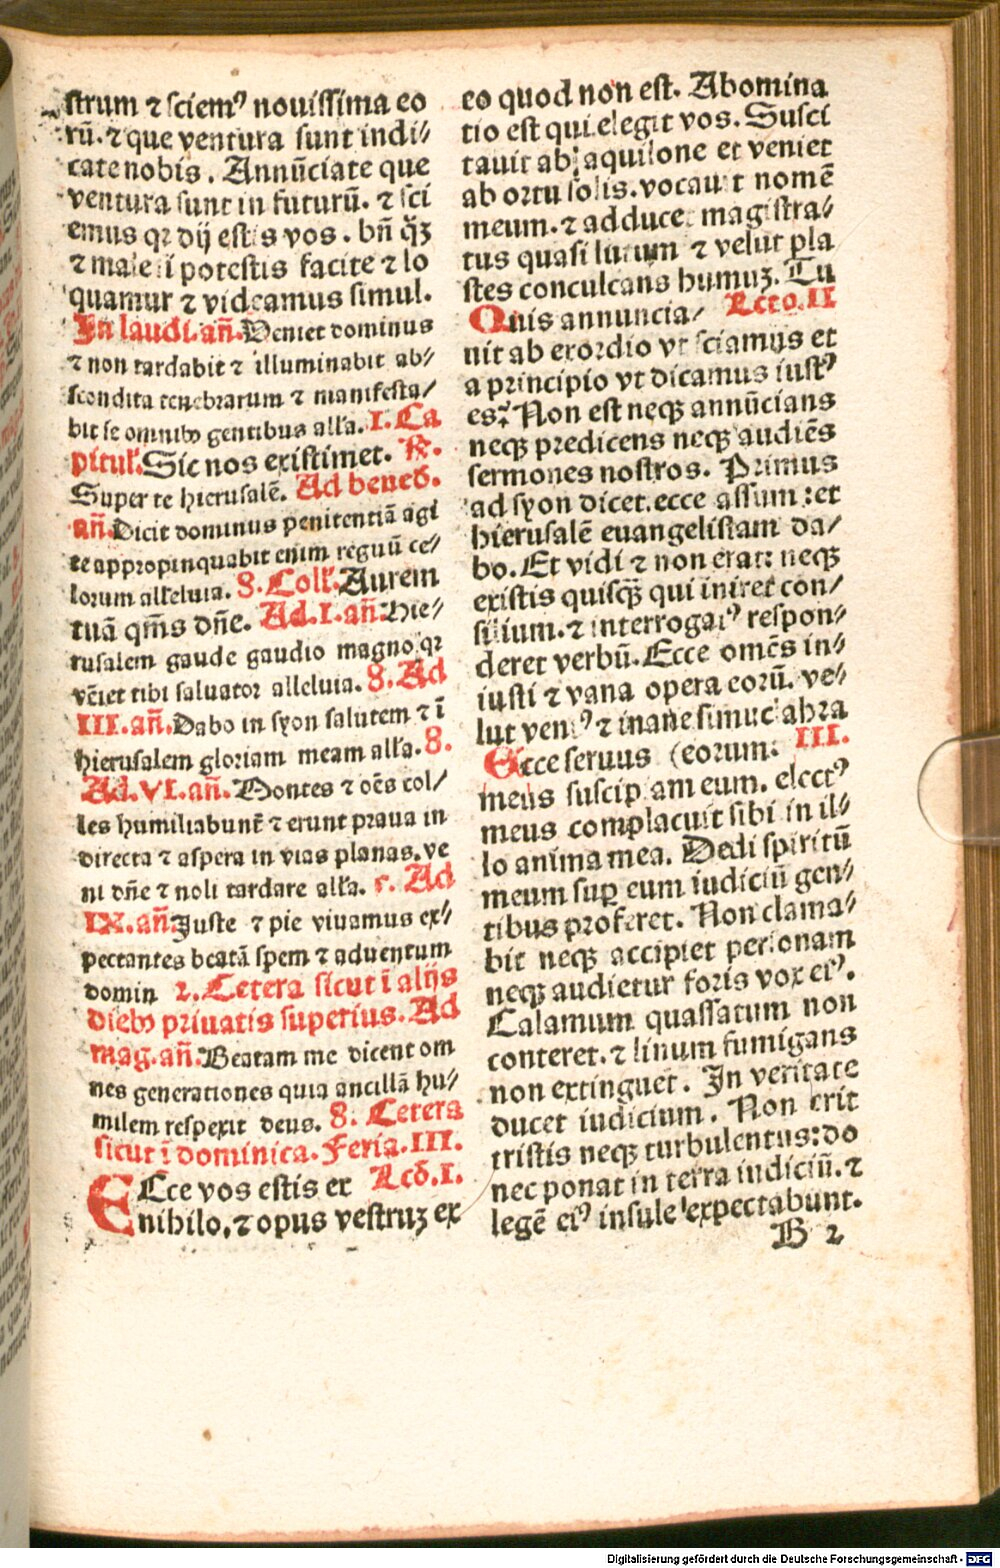 strum ⁊ sciemꝰ nouissima eo
rū. ⁊ que ventura sunt indi⸗
cate nobis. Annūciate que
ventura sunt in futurū. ⁊ sci
emus qꝛ dij estis vos. bn̄ q̄ꝫ
⁊ male si potestis facite ⁊ lo
quamur ⁊ videamus simul.
In laudi. an̄. Veniet dominus
⁊ non tardabit ⁊ illuminabit ab⸗
scondita tenebrarum ⁊ manifesta⸗
bit se omnibꝰ gentibus all'a. I. Ca
pitul'. Sic nos existimet. ℟.
Super te hierusalē. Ad bened̄.
an̄. Dicit dominus penitentiā agi
te appropinquabit enim regnū ce⸗
lorum alleluia. 8. Coll'. Aurem
tuā qm̄s dn̄e. Ad. I. an̄. Hie⸗
rusalem gaude gaudio magno qꝛ
vēiet tibi saluator alleluia. 8. Ad
III. an̄. Dabo in syon salutem ⁊ ī
hierusalem gloriam meam all'a. 8.
Ad. VI. an̄. Montes ⁊ oēs col⸗
les humiliabunt̄ ⁊ erunt praua in
directa ⁊ aspera in vias planas. ve
ni dn̄e ⁊ noli tardare all'a. r. Ad
IX. an̄. Juste ⁊ pie viuamus ex⸗
pectantes beatā spem ⁊ aduentum
domin 2. Cetera sicut ī alijs
diebꝰ priuatis superius. Ad
mag. an̄. Beatam me dicent om
nes generationes quia ancillā hu⸗
milem respexit deus. 8. Cetera
sicut ī dominica. Feria. III.
ECce vos estis ex Lcō. I.
nihilo. ⁊ opus vestruꝫ ex
eo quod non est. Abomina
tio est qui elegit vos. Susci
tauit ab aquilone et veniet
ab ortu solis. vocauit nomē
meum. ⁊ adducet magistra⸗
tus quasi lutum ⁊ velut pla
stes conculcans humuꝫ. Tu
Quis annuncia⸗ Lcto. II
uit ab exordio vt sciamus et
a principio vt dicamus iustꝰ
es? Non est neqꝫ annūcians
neqꝫ predicens neqꝫ audiēs
sermones nostros. Primus
ad syon dicet. ecce assum: et
hierusalē euangelistam da⸗
bo. Et vidi ⁊ non erat: neqꝫ
existis quisq̄ꝫ qui iniret con⸗
silium. ⁊ interrogatꝰ respon⸗
deret verbū. Ecce omēs in⸗
iusti ⁊ vana opera eorū. ve⸗
lut ventꝰ ⁊ inane simulachra
Ecce seruus (eorum: III.
meus suscipiam eum. electꝰ
meus complacuit sibi in il⸗
lo anima mea. Dedi spiritū
meum sup̲ eum iudiciū gen⸗
tibus proferet. Non clama⸗
bit neqꝫ accipiet personam
neqꝫ audietur foris vox eiꝰ.
Calamum quassatum non
conteret. ⁊ linum fumigans
non extinguet. In veritate
ducet iudicium. Non erit
tristis neqꝫ turbulentus: do
nec ponat in terra iudiciū. ⁊
legē eiꝰ insule expectabunt.
B 2
Digitalisierung gefördert durch die Deutsche Forschungsgemeinschaft - DFG